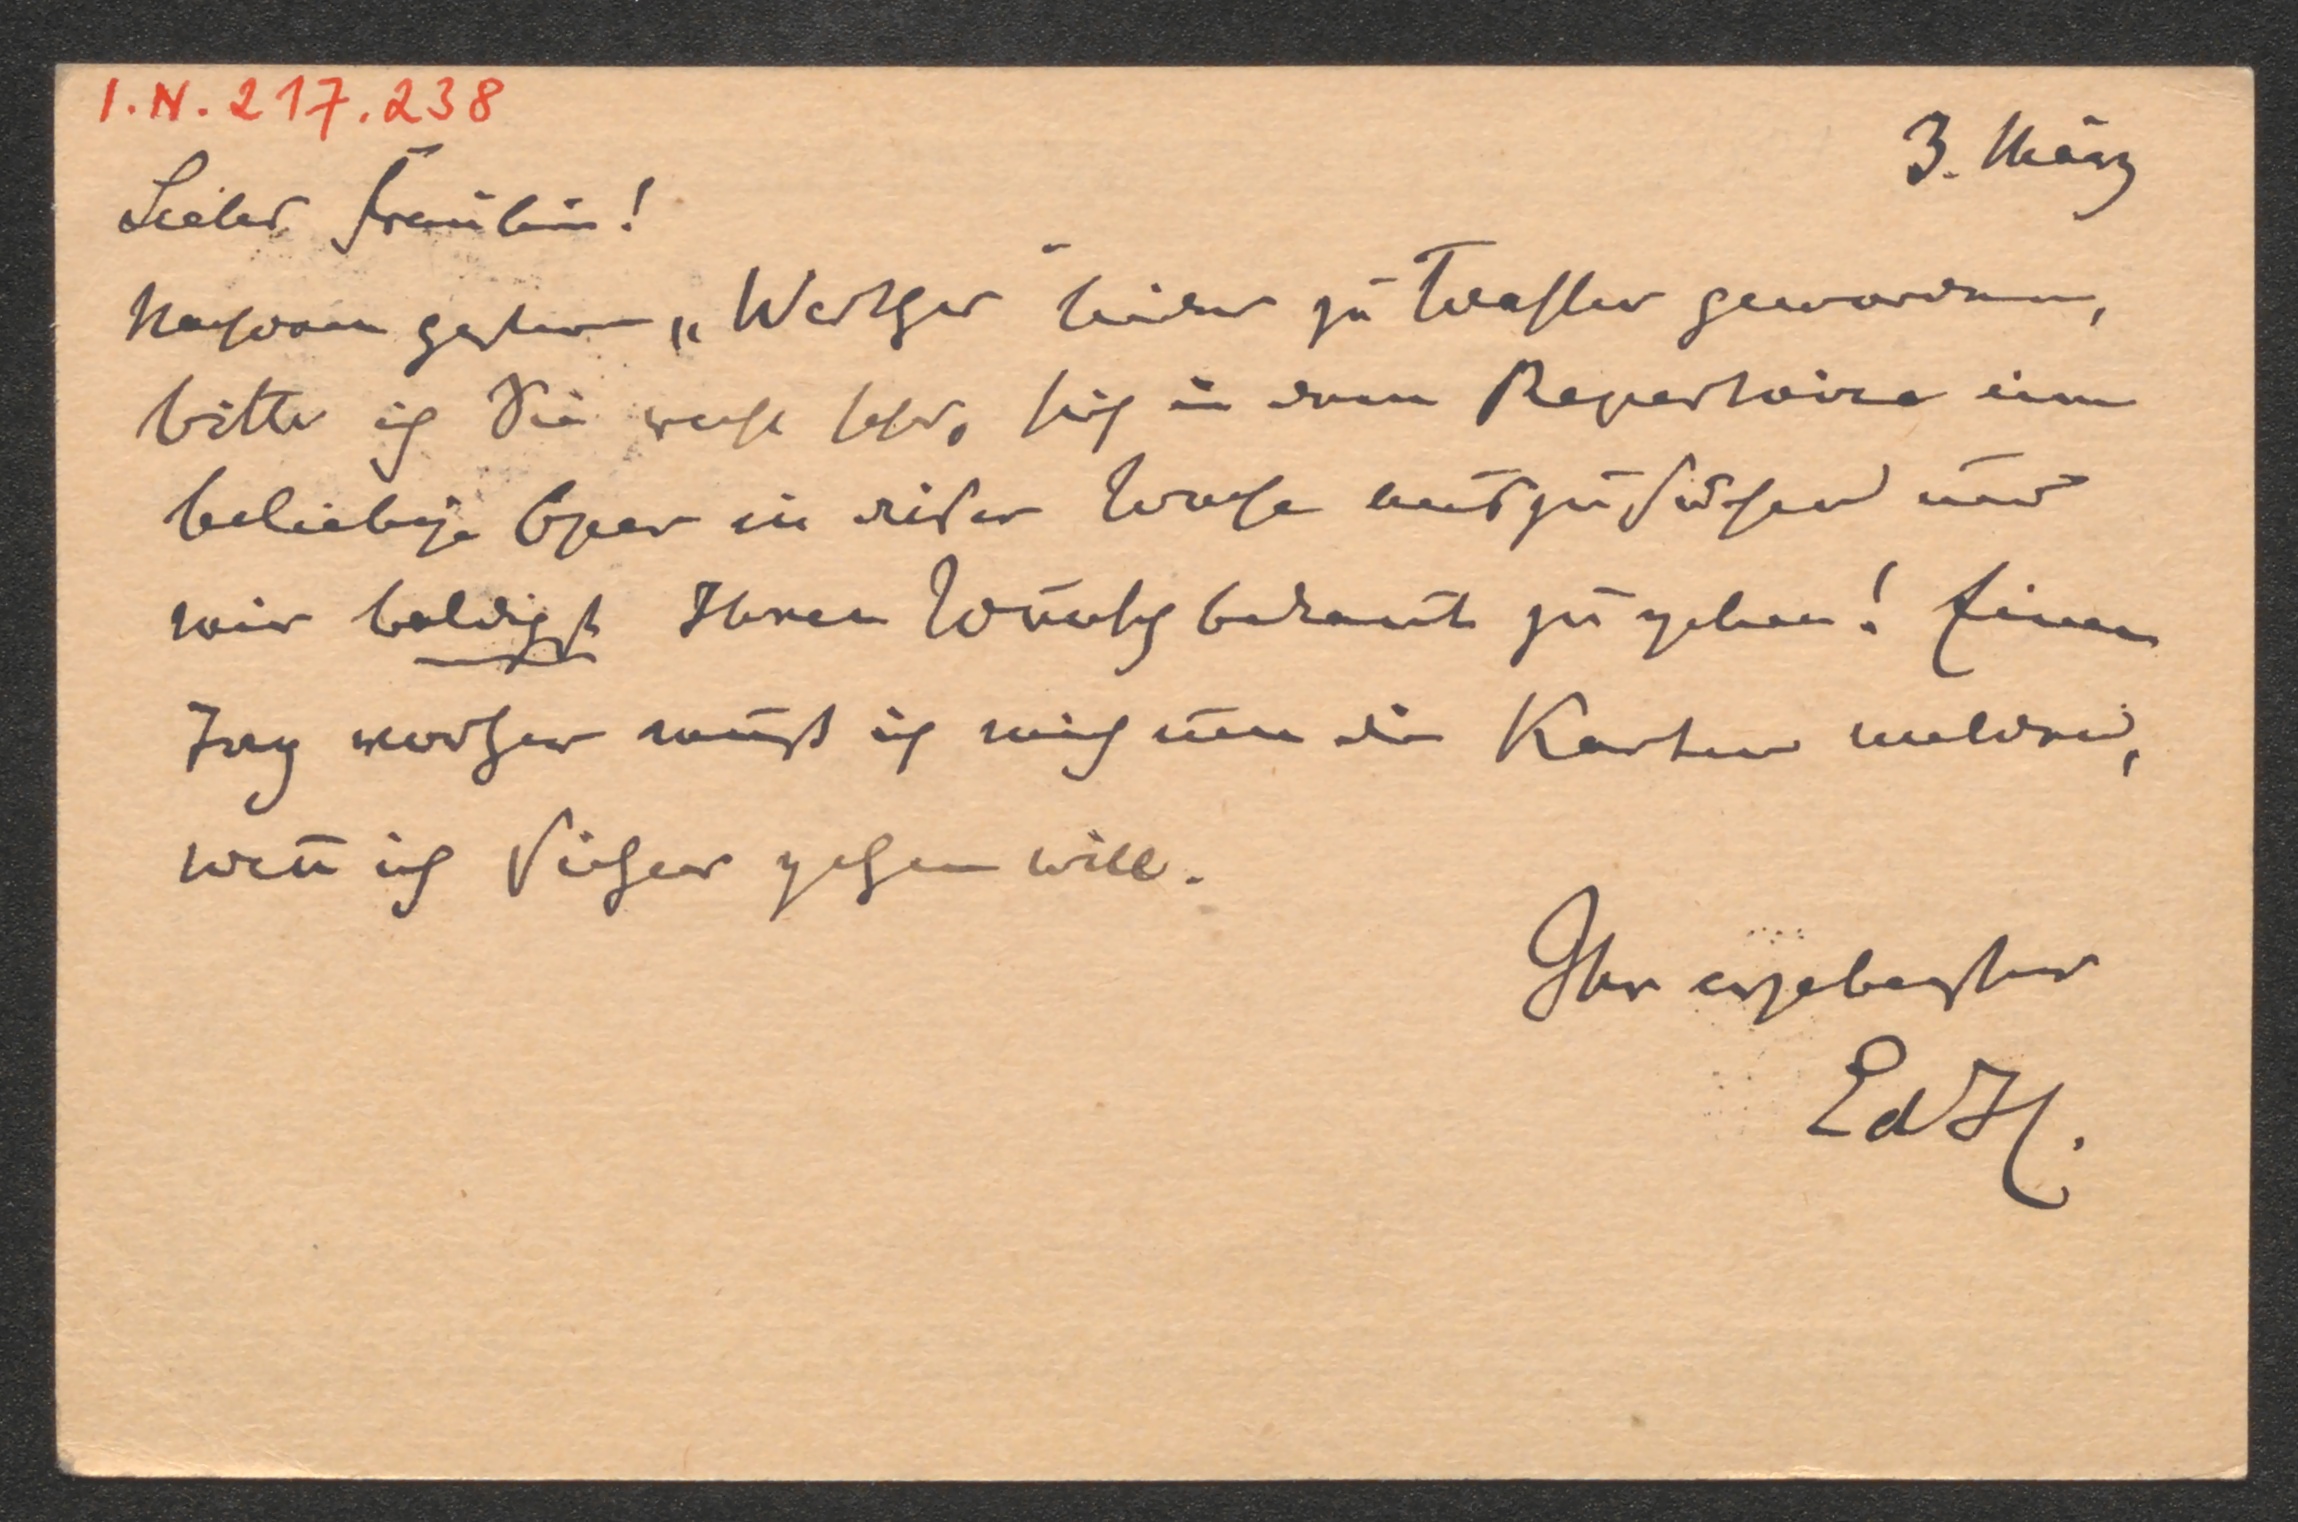 I.N. 217.238
3. März
Liebes Fräulein!
Nachdem gestern „Werther" leider zu Wasser geworden,
bitte ich Sie recht sehr, sich in dem Repertoire eine
beliebige Oper in dieser Woche auszusuchen und
mir baldigst Ihren Wunsch bekannt zu geben! Einen
Tag vorher muß ich mich um die Karten melden,
wen̄ ich sicher gehen will.
Ihr ergebenster
EdH.